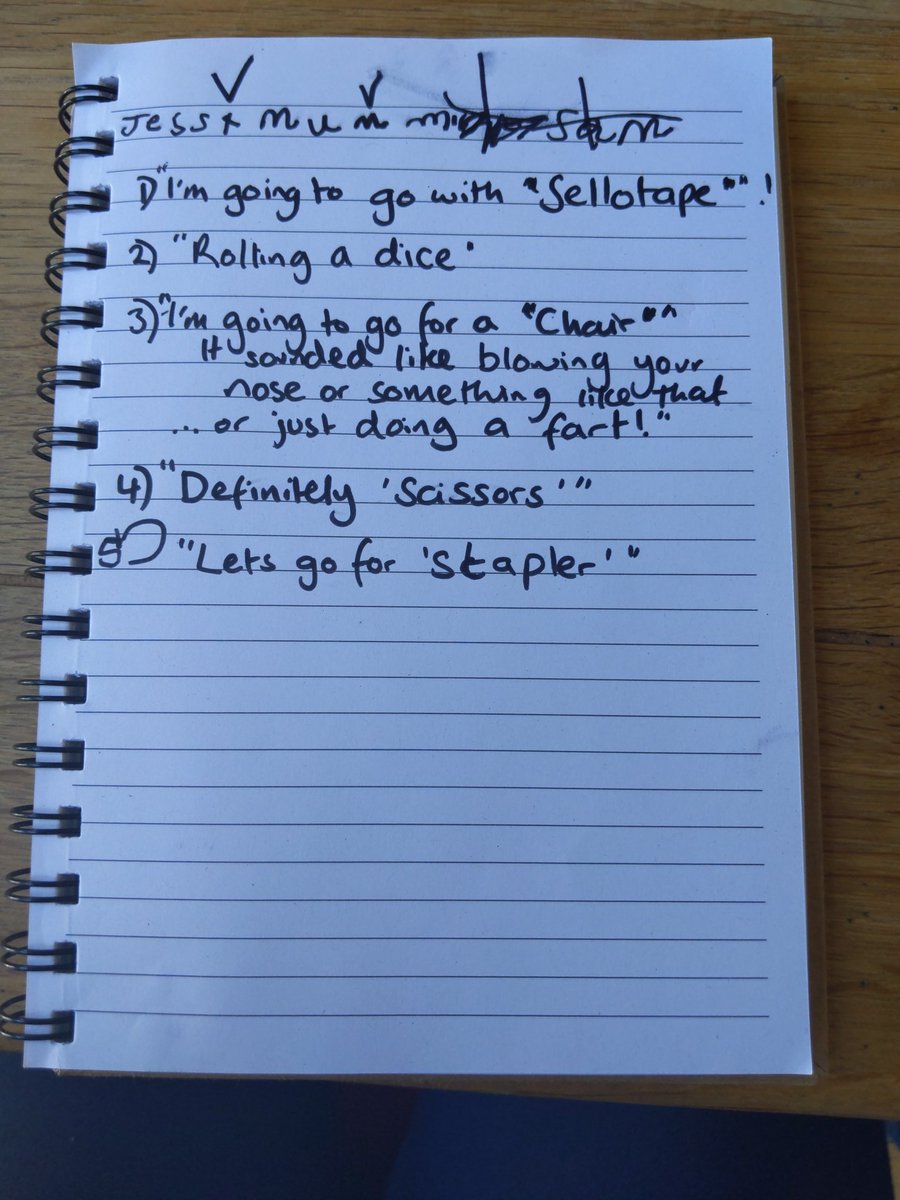 Jess + mum Sam
1) "I'm going to go with "Sellotape""!
2) "Rolling a dice'
3) "I'm going to go for a "Chair""
It sounded like blowing your
nose or something like that
... or just doing a fart!"
4) "Definitely 'Scissors'"
5) "Lets go for 'Stapler'"